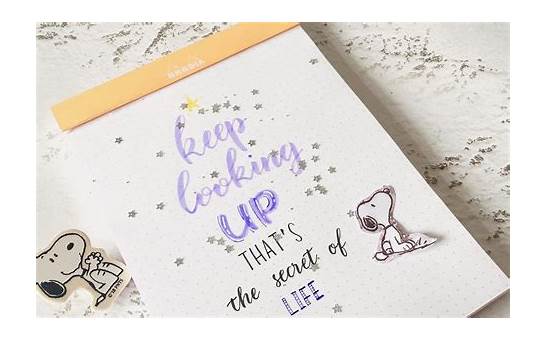 RHODIA
keep
looking
UP
THAT'S
the secret of
LIFE